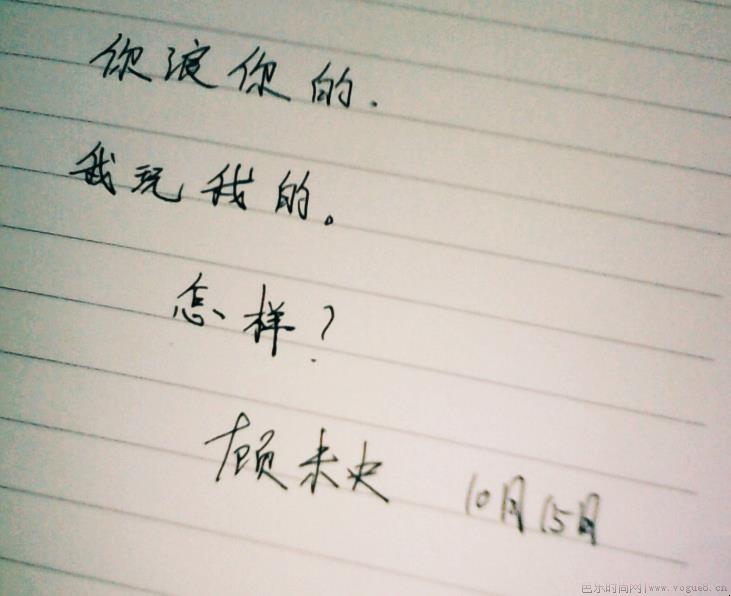 你浪你的.
我玩我的。
怎样?
顾未央 10月15月
巴乐时尚网|www.vogue8.cn